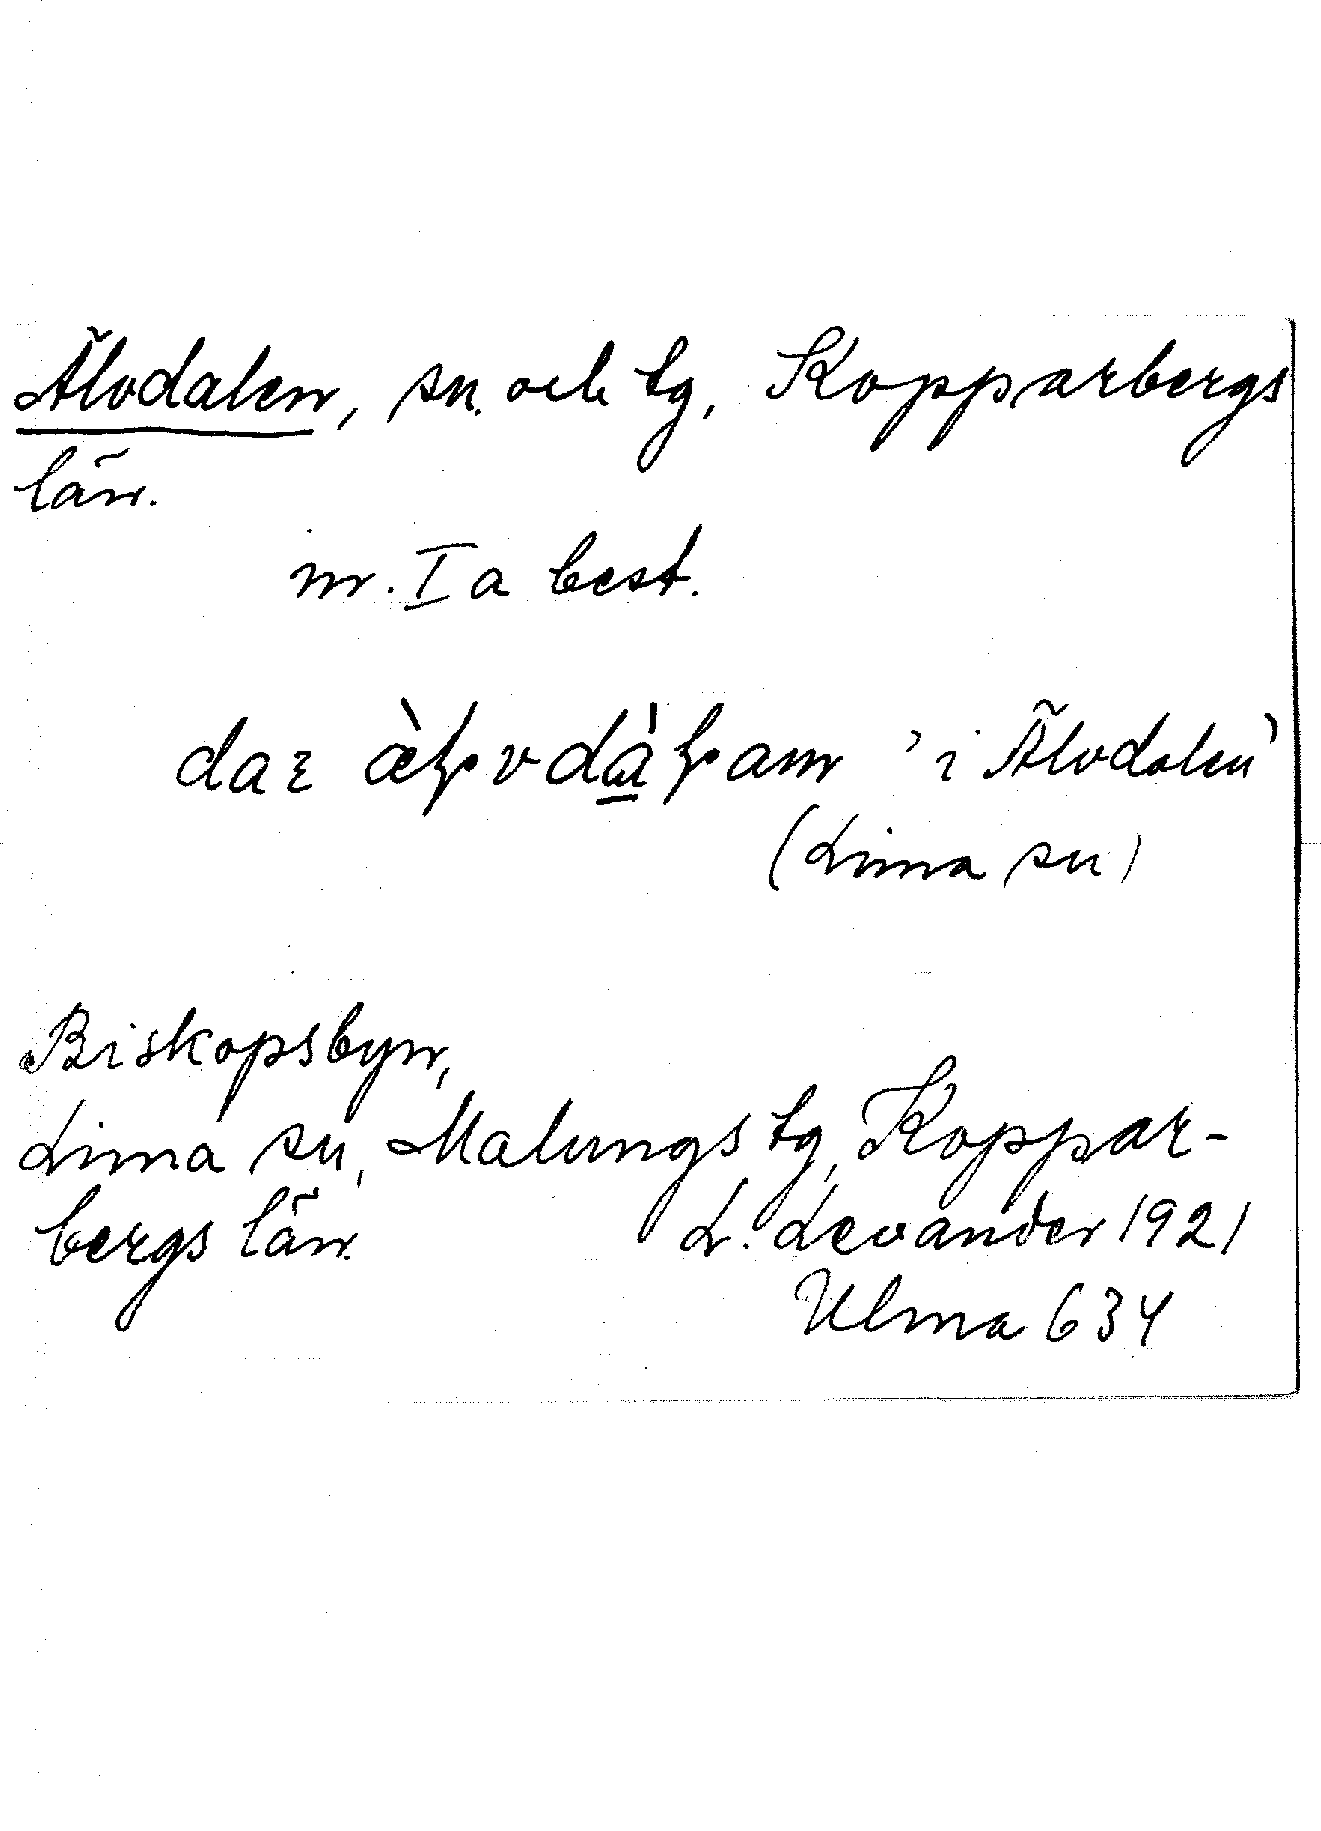 Älvdalen, sn. och tg, Kopparbergs
län.
m. I a best.
'i Älvdalen'
(Lima sn)
Biskopsbyn,
Lima sn, Malungs tg, Koppar-
bergs län. L. Levander 1921
Ulma 634